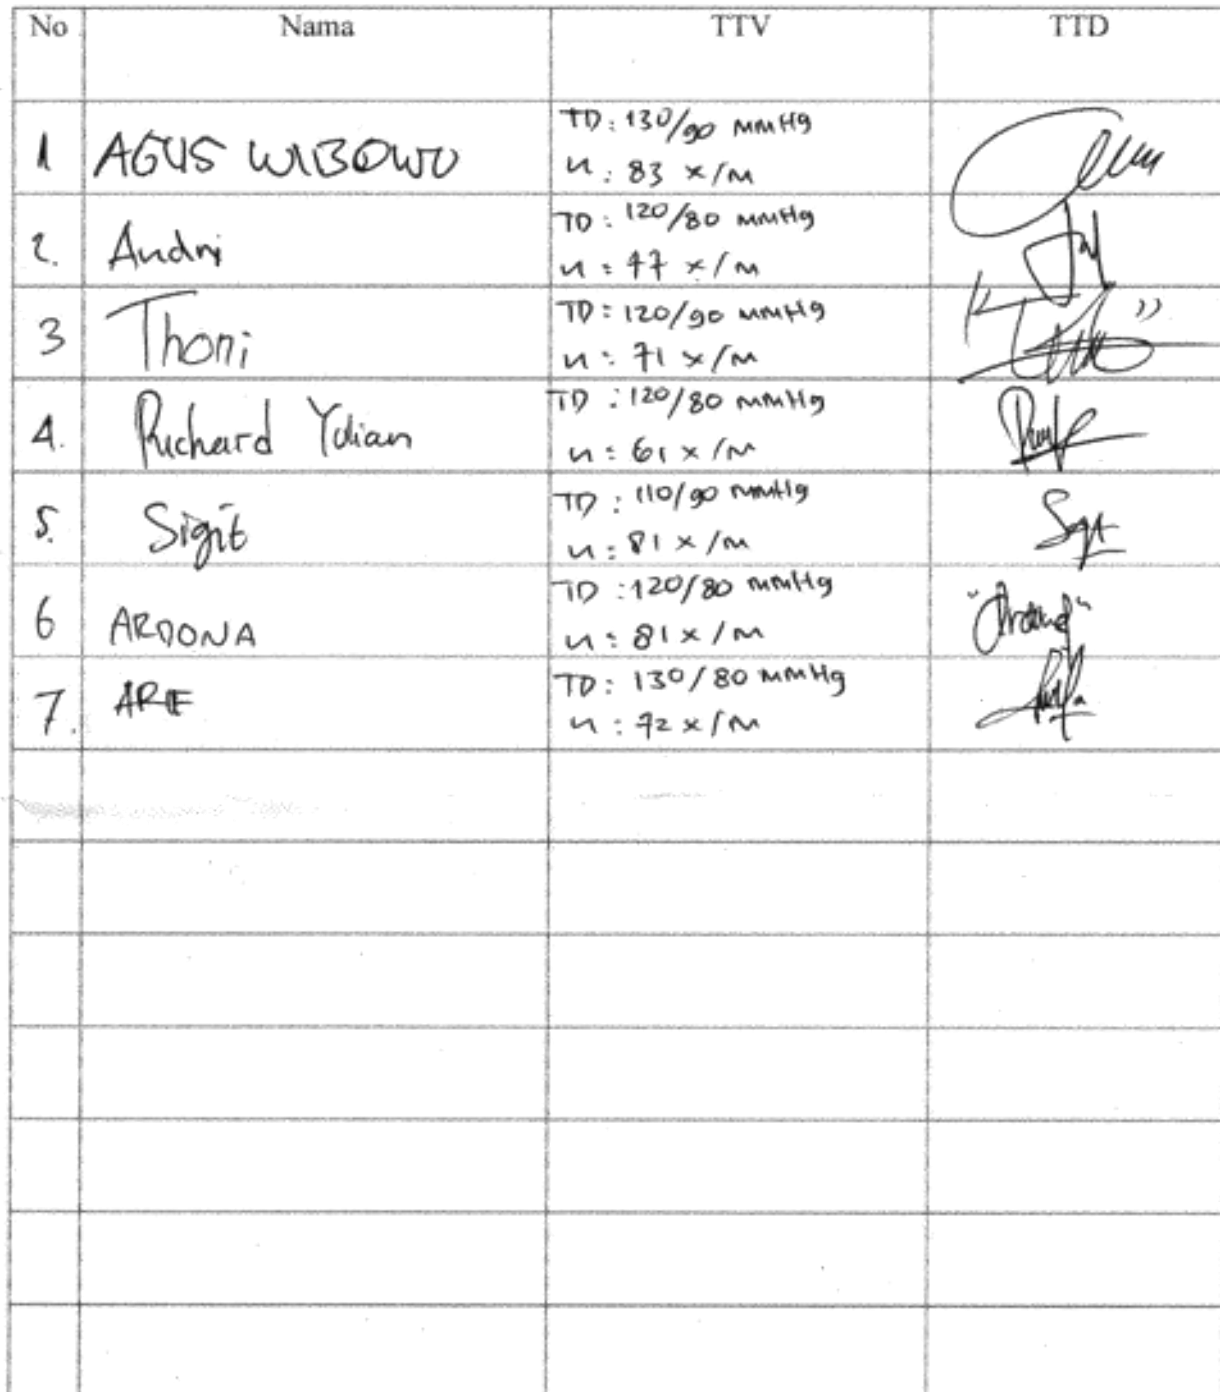 No Nama TTV TTD
1 AGUS WIBOWO TD : 130/90 mmHg
n : 83 x/m
2. Andri TD : 120/80 mmHg
n : 77 x/m
3 Thoni TD : 120/90 mmHg
n : 71 x/m
4. Richard Yulian TD : 120/80 mmHg
n : 61 x/m
5. Sigit TD : 110/90 mmHg
n : 81 x/m
6 ARDONA TD : 120/80 mmHg
n : 81 x/m
7. TD : 130/80 mmHg
n : 72 x/m